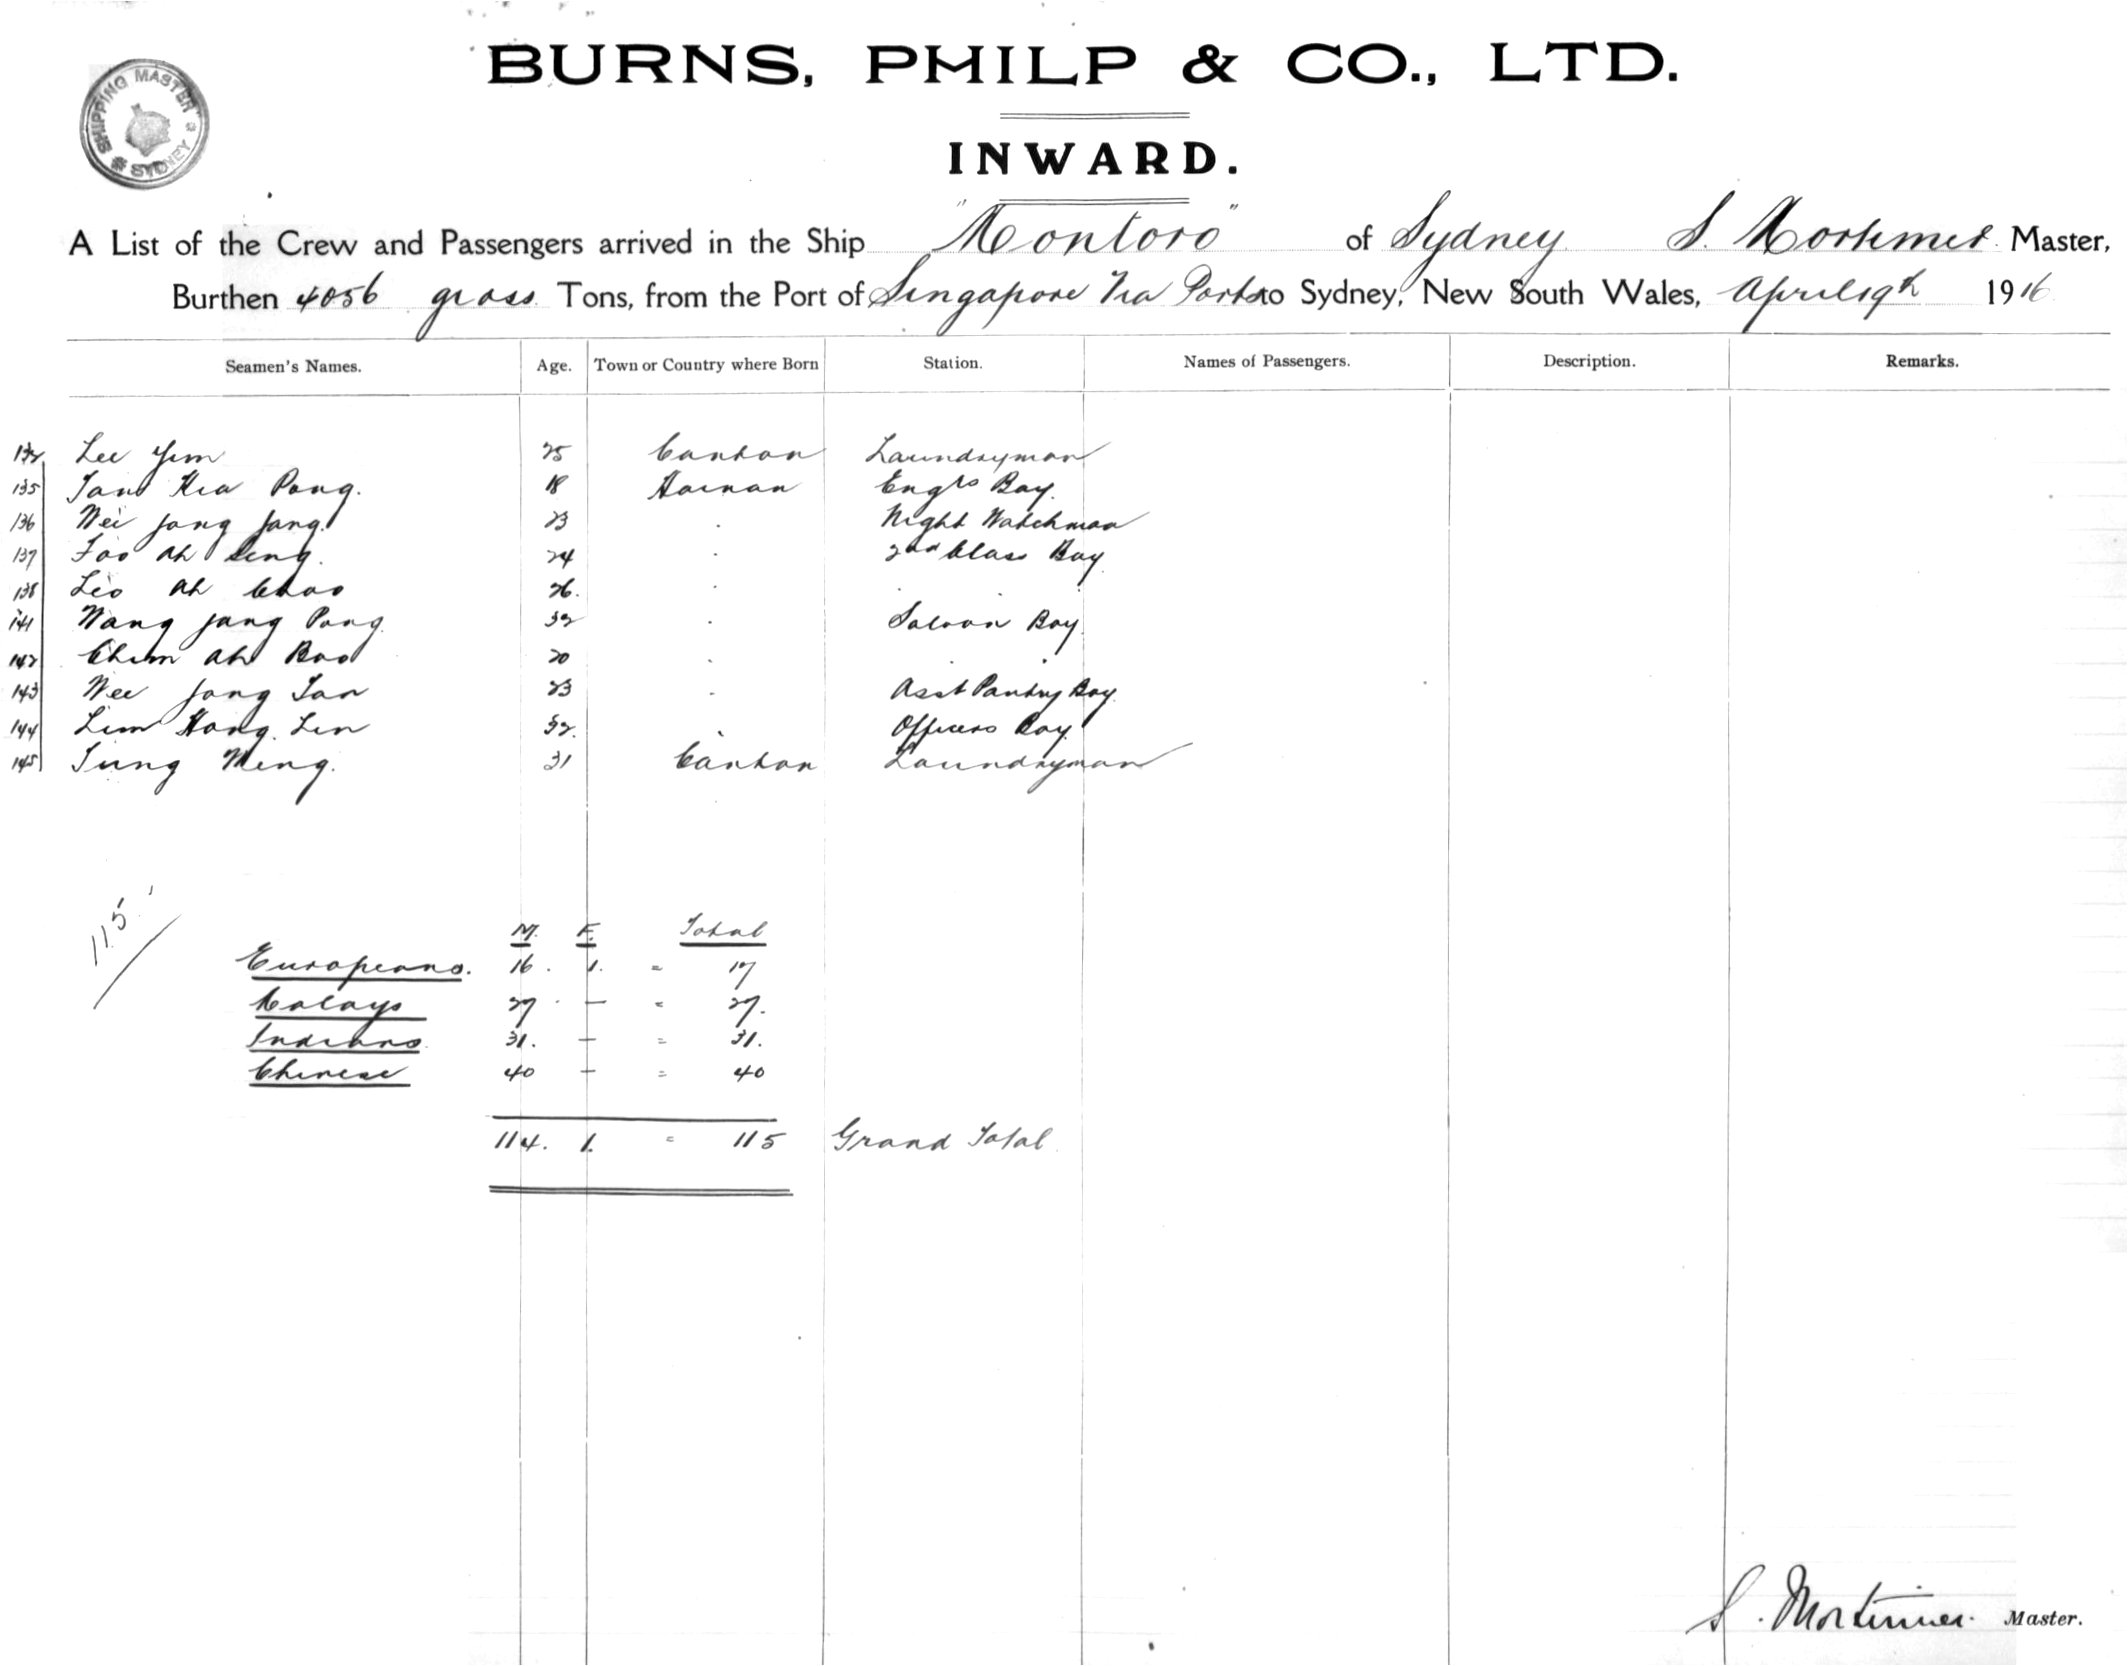 BURNS, PHILP & CO., LTD.
SHIPPING MASTER SYDNEY
INWARD.
A List of the Crew and Passengers arrived in the Ship "Montoro" of Sydney S. Mortimer Master,
Burthen 4056 gross Tons, from the Port of Singapore Via Ports to Sydney, New South Wales, April 19th 1916
Seamen's Names. Age. Town or Country where Born Station. Names of Passengers. Description. Remarks.
132 Lee Yim 25 Canton Laundryman
135 Tan Kia Pong. 18 Hainan Engrs Boy.
136 Wei Jong Jang. 23 Night Watchman
137 Foo Ah Seng. 24 2nd Class Boy
138 Leo Ah Choo 26.
141 Wang Jang Pong. 32 Saloon Boy.
142 Chim Ah Boo 20
143 Wee Jong Tan 23 Asst Pantry Boy.
144 Lim Hong Lin 32. Officers Boy
145 Tung Meng. 31 Canton Laundryman
115
M. F. Total
Europeans. 16. 1. = 17
Malays 27 - = 27.
Indians 31. - = 31.
Chinese 40 - = 40
114. 1. = 115 Grand Total
S. Mortimer. Master.